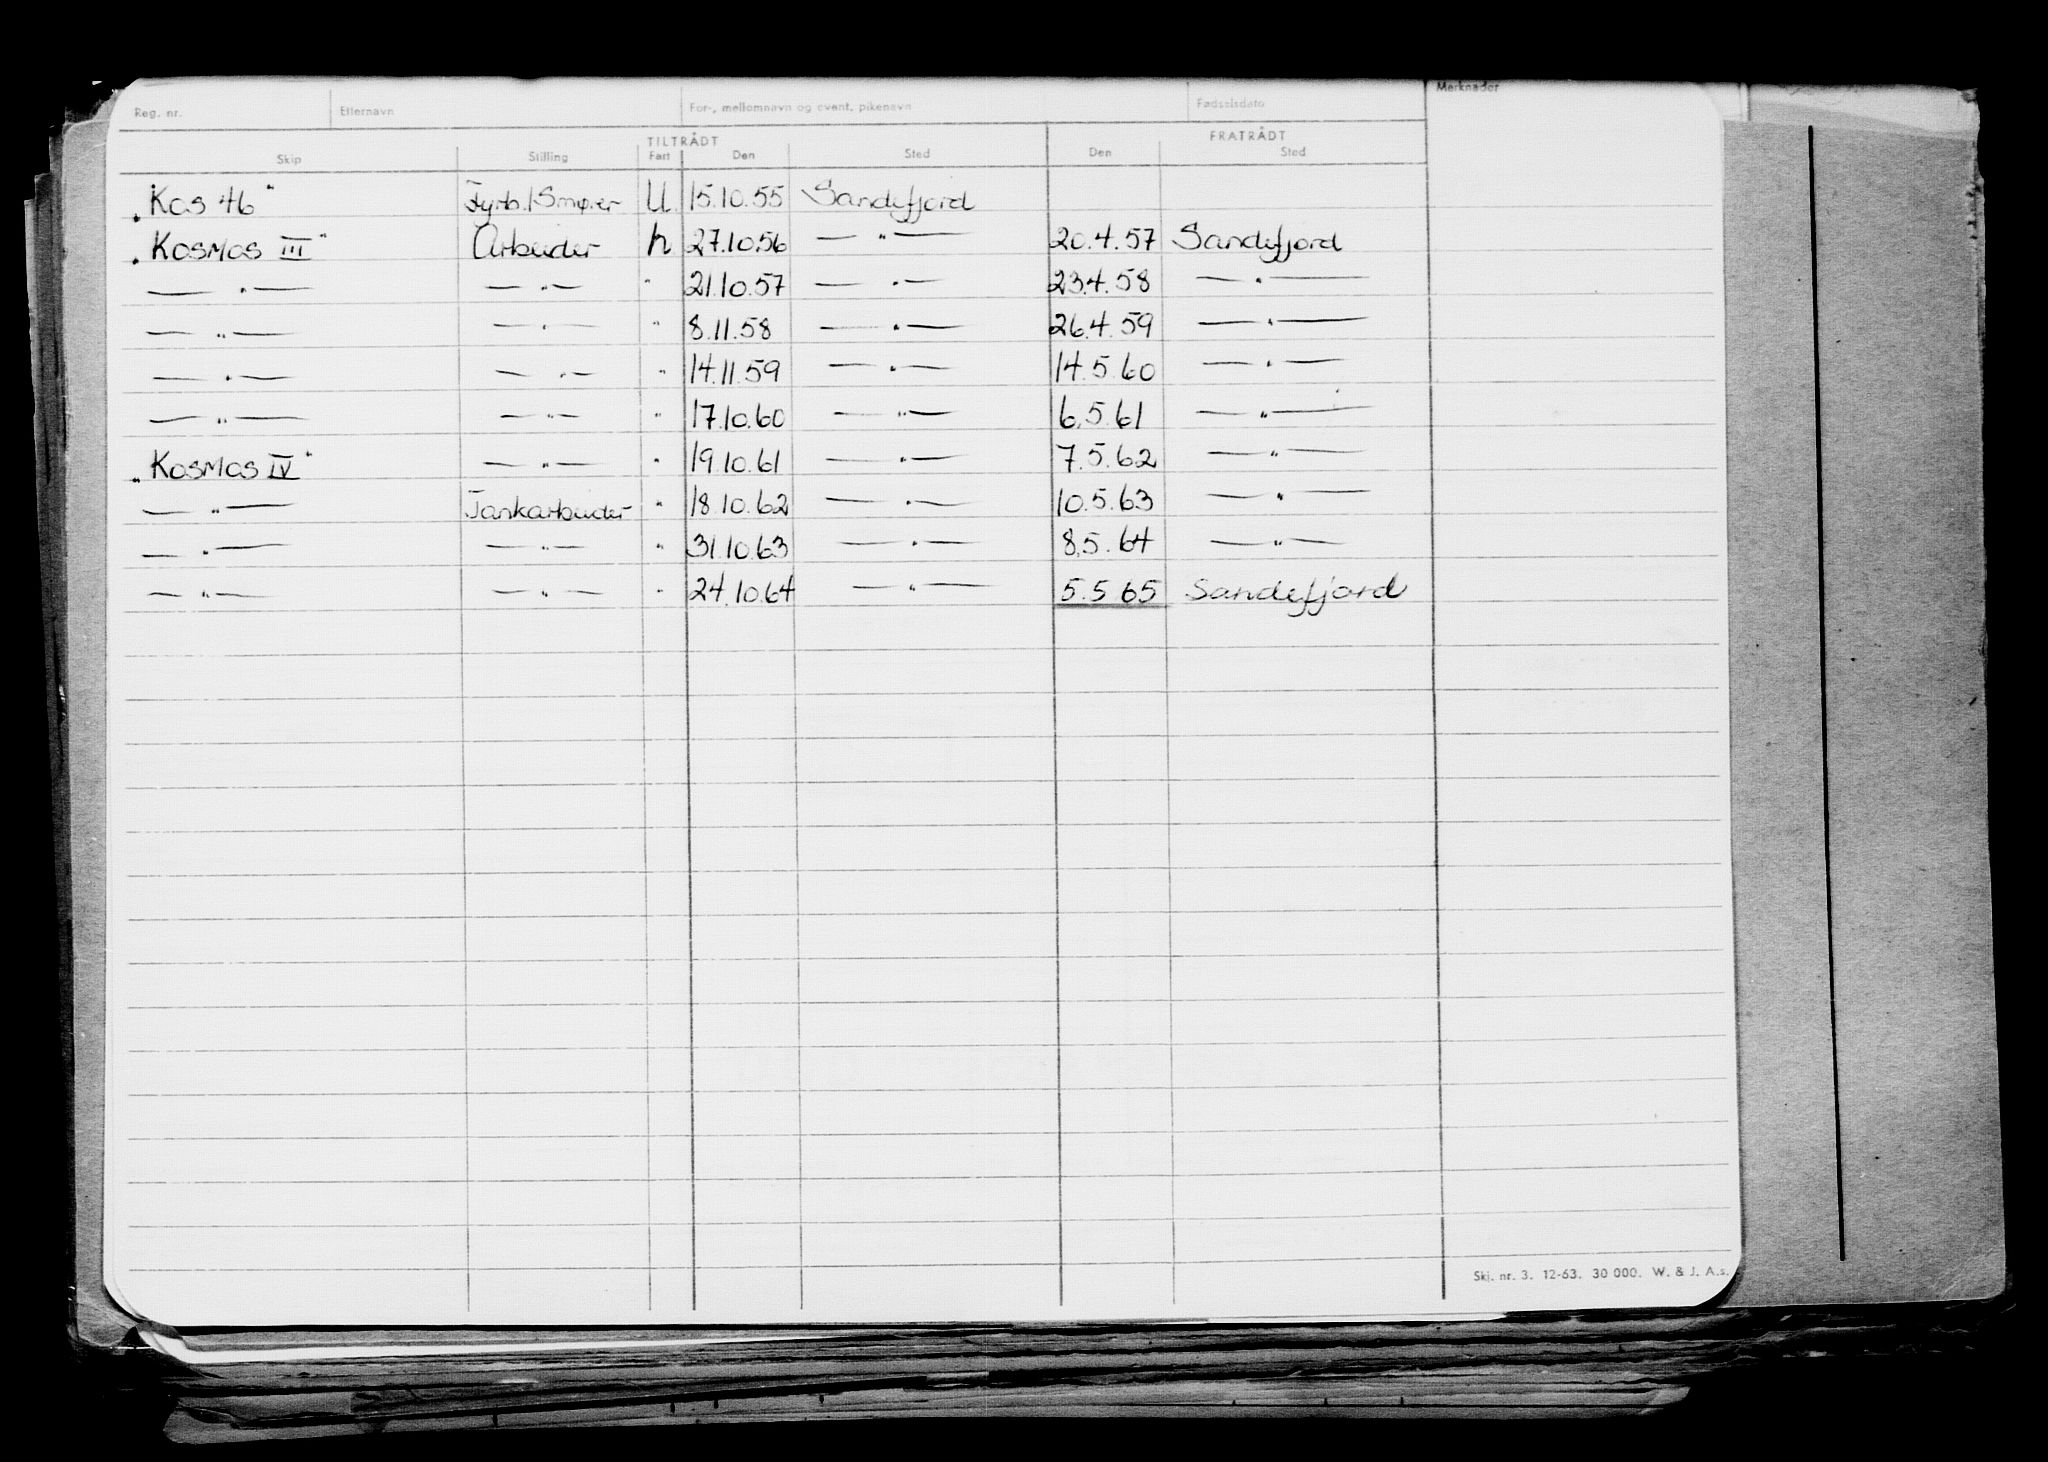 Reg. nr. Etternavn For-, mellomnavn og event. pikenavn Fødselsdato Merknader
TILTRÅDT FRATRÅDT
Skip Stilling Fart Den Sted Den Sted
"Kos 46" Fyrb./Smører U 15.10.55 Sandefjord
"Kosmos III" Arbeider h 27.10.56 — " — 20.4.57 Sandefjord
— " — — " — " 21.10.57 — " — 23.4.58 — " —
— " — — " — " 8.11.58 — " — 26.4.59 — " —
— " — — " — " 14.11.59 — " — 14.5.60 — " —
— " — — " — " 17.10.60 — " — 6.5.61 — " —
"Kosmos IV" — " — " 19.10.61 — " — 7.5.62 — " —
— " — Tankarbeider " 18.10.62 — " — 10.5.63 — " —
— " — — " — " 31.10.63 — " — 8.5.64 — " —
— " — — " — " 24.10.64 — " — 5.5.65 Sandefjord
Skj. nr. 3. 12-63. 30 000. W. & J. A.s.